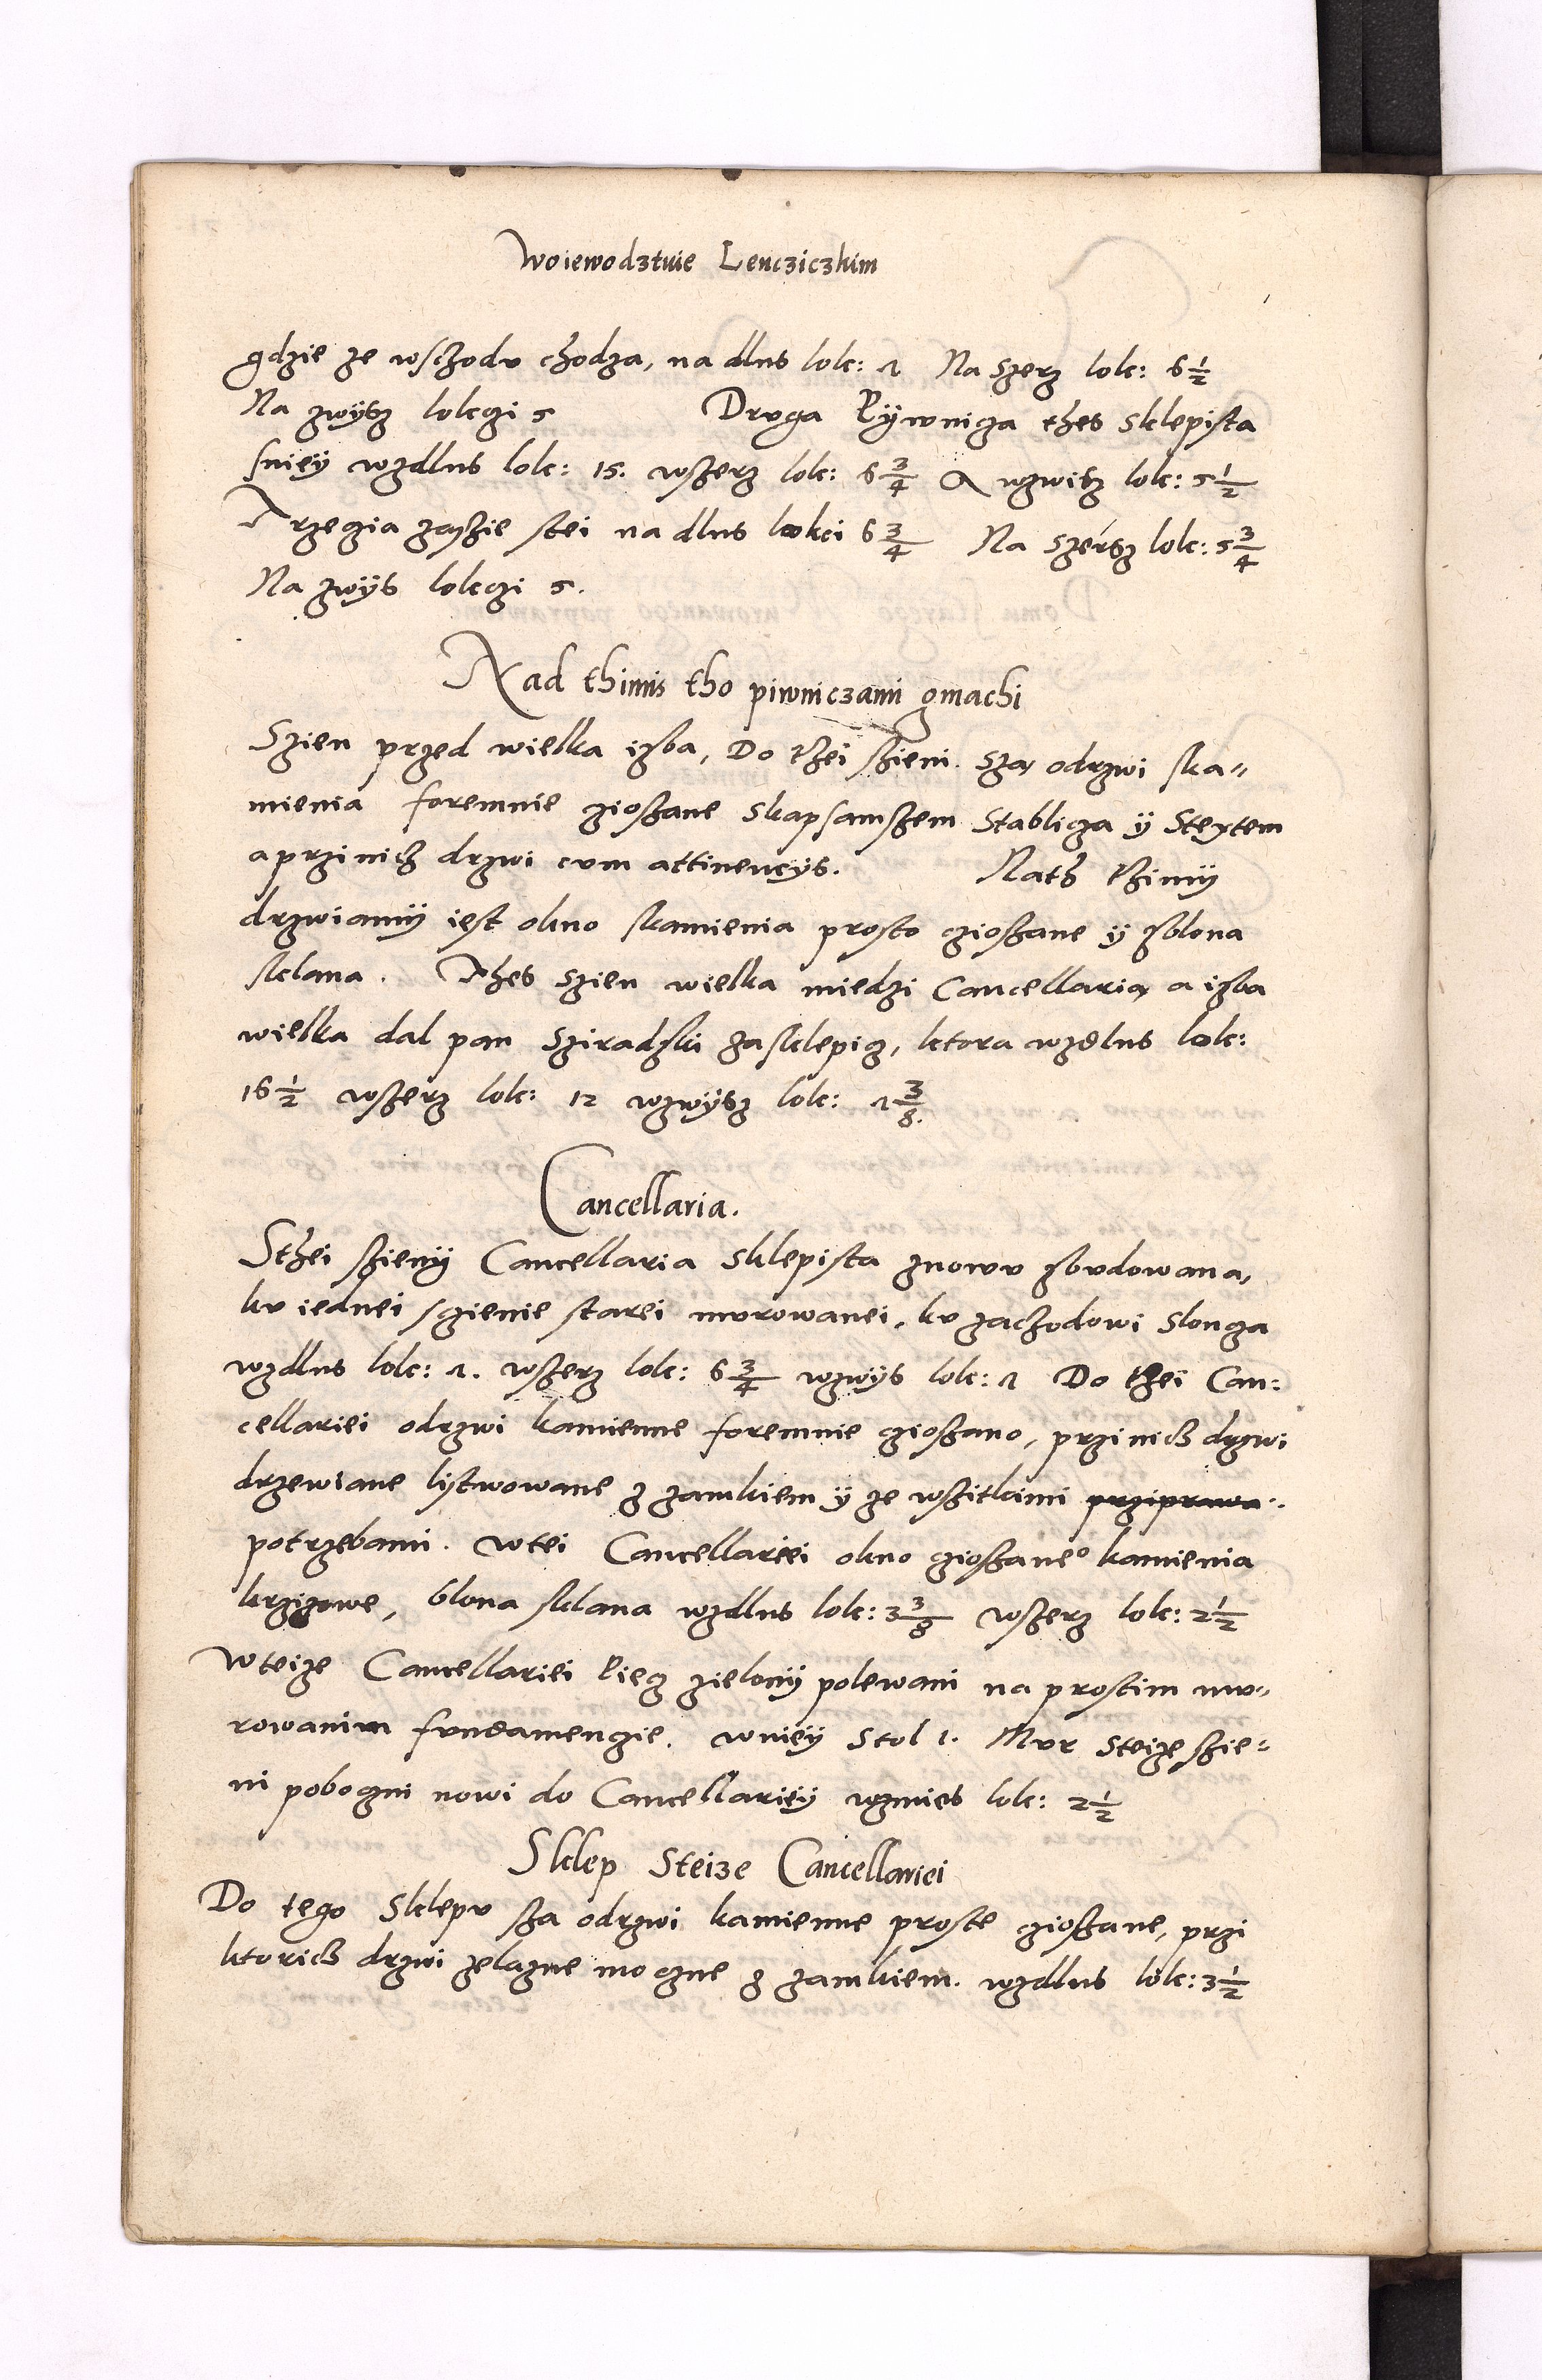 Woiewodztwie Lencziczkim
gdzie ze wschodu chodza, na dlus lok: 7 Na szerz lok: 6 1/2
Na zwysz lokczi 5 Druga Pywnicza thes sklepista
sniey wzdlus lok: 15. wszerz lok: 6 3/4 A wzwisz lok: 5 1/2
Trzecia zasie stei na dlus lokci 6 3/4 Na szersz lok: 5 3/4
Na zwys lokczi 5.
Nad thimis tho piwniczami gmachi
Szien przed wielka izba, Do thei szieni sza odrzwi ska=
mienia foremnie cziosane skapsamszem Stablicza y Stextem
a przi nich drzwi cum attinencys. Nath thimy
drzwiamy iest okno skamienia prosto cziosane y zblona
sklana. Thes szien wielka miedzi Cancellaria a izba
wielka dal pan Sziradzski zasklepicz, ktora wzdlus lok:
16 1/2 wszerz lok: 12 wzwysz lok: 7 3/8.
Cancellaria.
Sthei szieny Cancellaria sklepista znowu zbudowana,
ku iednei sczienie starei murowanei, ku zachodowi Slonca
wzdlus lok: 7. wszerz lok: 6 3/4 wzwys lok: 7 Do thei Can:
cellariei odrzwi kamienne foremnie cziosano, przi nich drzwi
drzewiane lystwowane z zamkiem y ze wszitkimi prziprawa..
potrzebami. w tei Cancellariei okno cziosane o kamienia
krzizowe, blona sklana wzdlus lok: 3 3/8 wszerz lok: 2 1/2
w teize Cancellariei Piecz zielony polewani na prostim mu=
rowanim fundamencie. w niey Stol 1. Mur steize szie=
ni poboczni nowi do Cancellariey wzmies lok: 2 1/2
Sklep Steize Cancellariei
Do tego Sklepu sza odrzwi kamienne proste cziosane, przi
ktorich drzwi zelazne moczne z zamkiem. wzdlus lok: 3 1/2